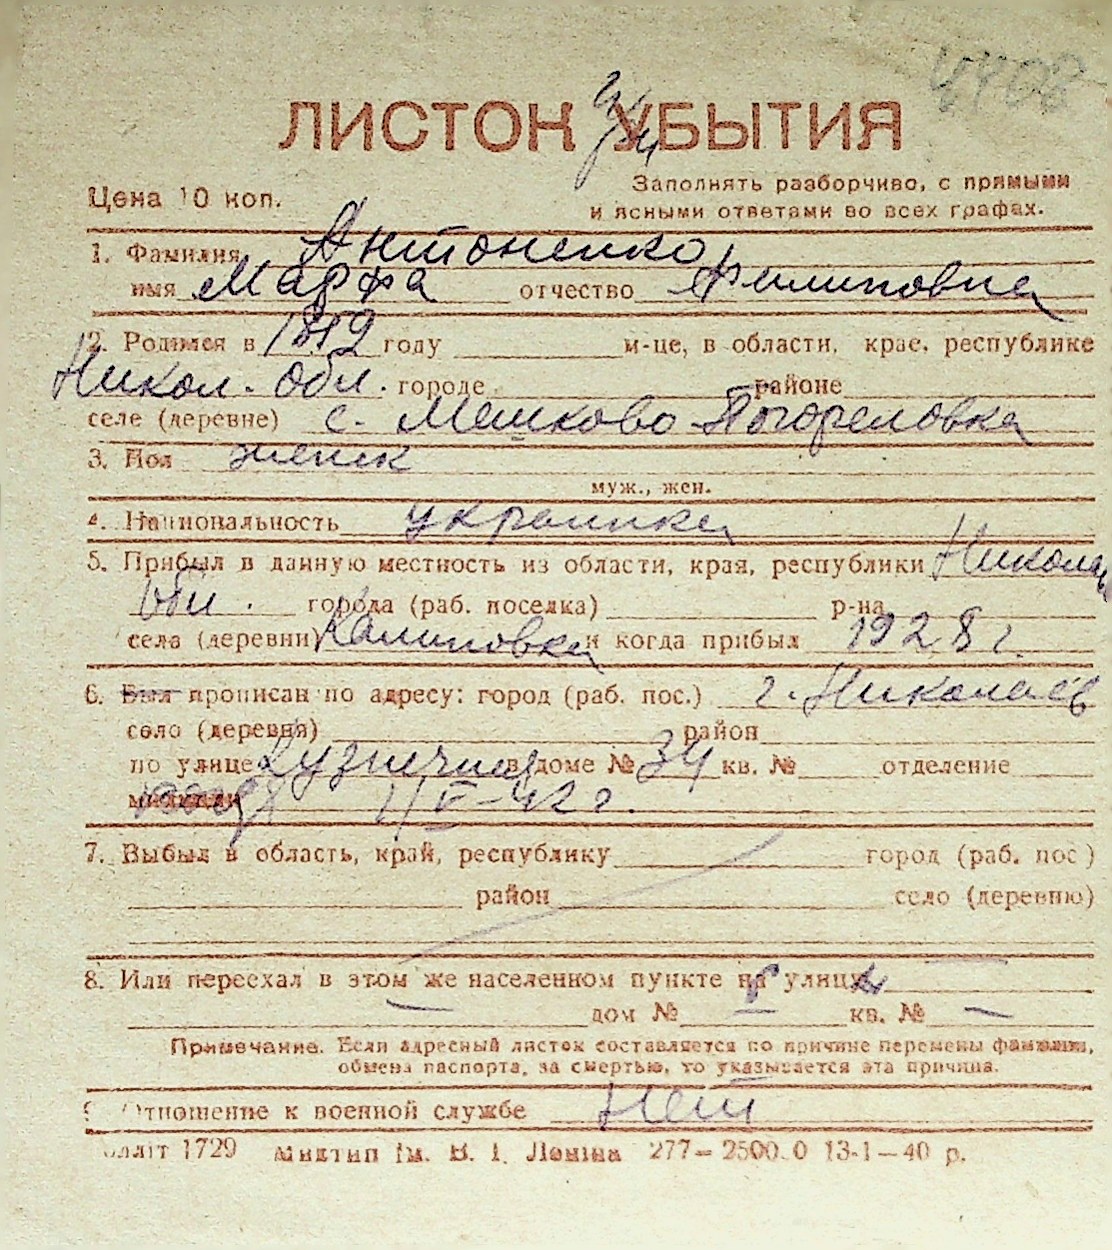 4408
ЛИСТОК УБЫТИЯ
Цена 10 коп.
Заполнять разборчиво, с прямыми
и ясными ответами во всех графах.
1. Фамилия Антоненко
имя Марфа отчество Филиповна
2. Родился в году м-це, в области, крае, республике
Никол. обл. городе районе
селе (деревне) с. Мешково-Погореловка
3. Пол женск
муж., жен.
4. Национальность украинка
5. Прибыл в данную местность из области, края, республики Николаев
обл. города (раб. поселка) р-на
села (деревни) Калиновка и когда прибыл 1928 г.
6. Был прописан по адресу: город (раб. пос.) г. Николаев
село (деревня) район
по улице Кузнечная в доме № 34 кв. № отделение
милиции 1/V-42 г.
7. Выбыл в область, край, республику город (раб. пос)
район село (деревню)
8. Или переехал в этом же населенном пункте на улицу
дом № кв. №
Примечание. Если адресный листок составляется по причине перемены фамилии,
обмена паспорта, за смертью, то указывается эта причина.
9. Отношение к военной службе Нет
олліт 1729 Миктип ім. В. І. Леніна 277—2500.0 13-1—40 р.